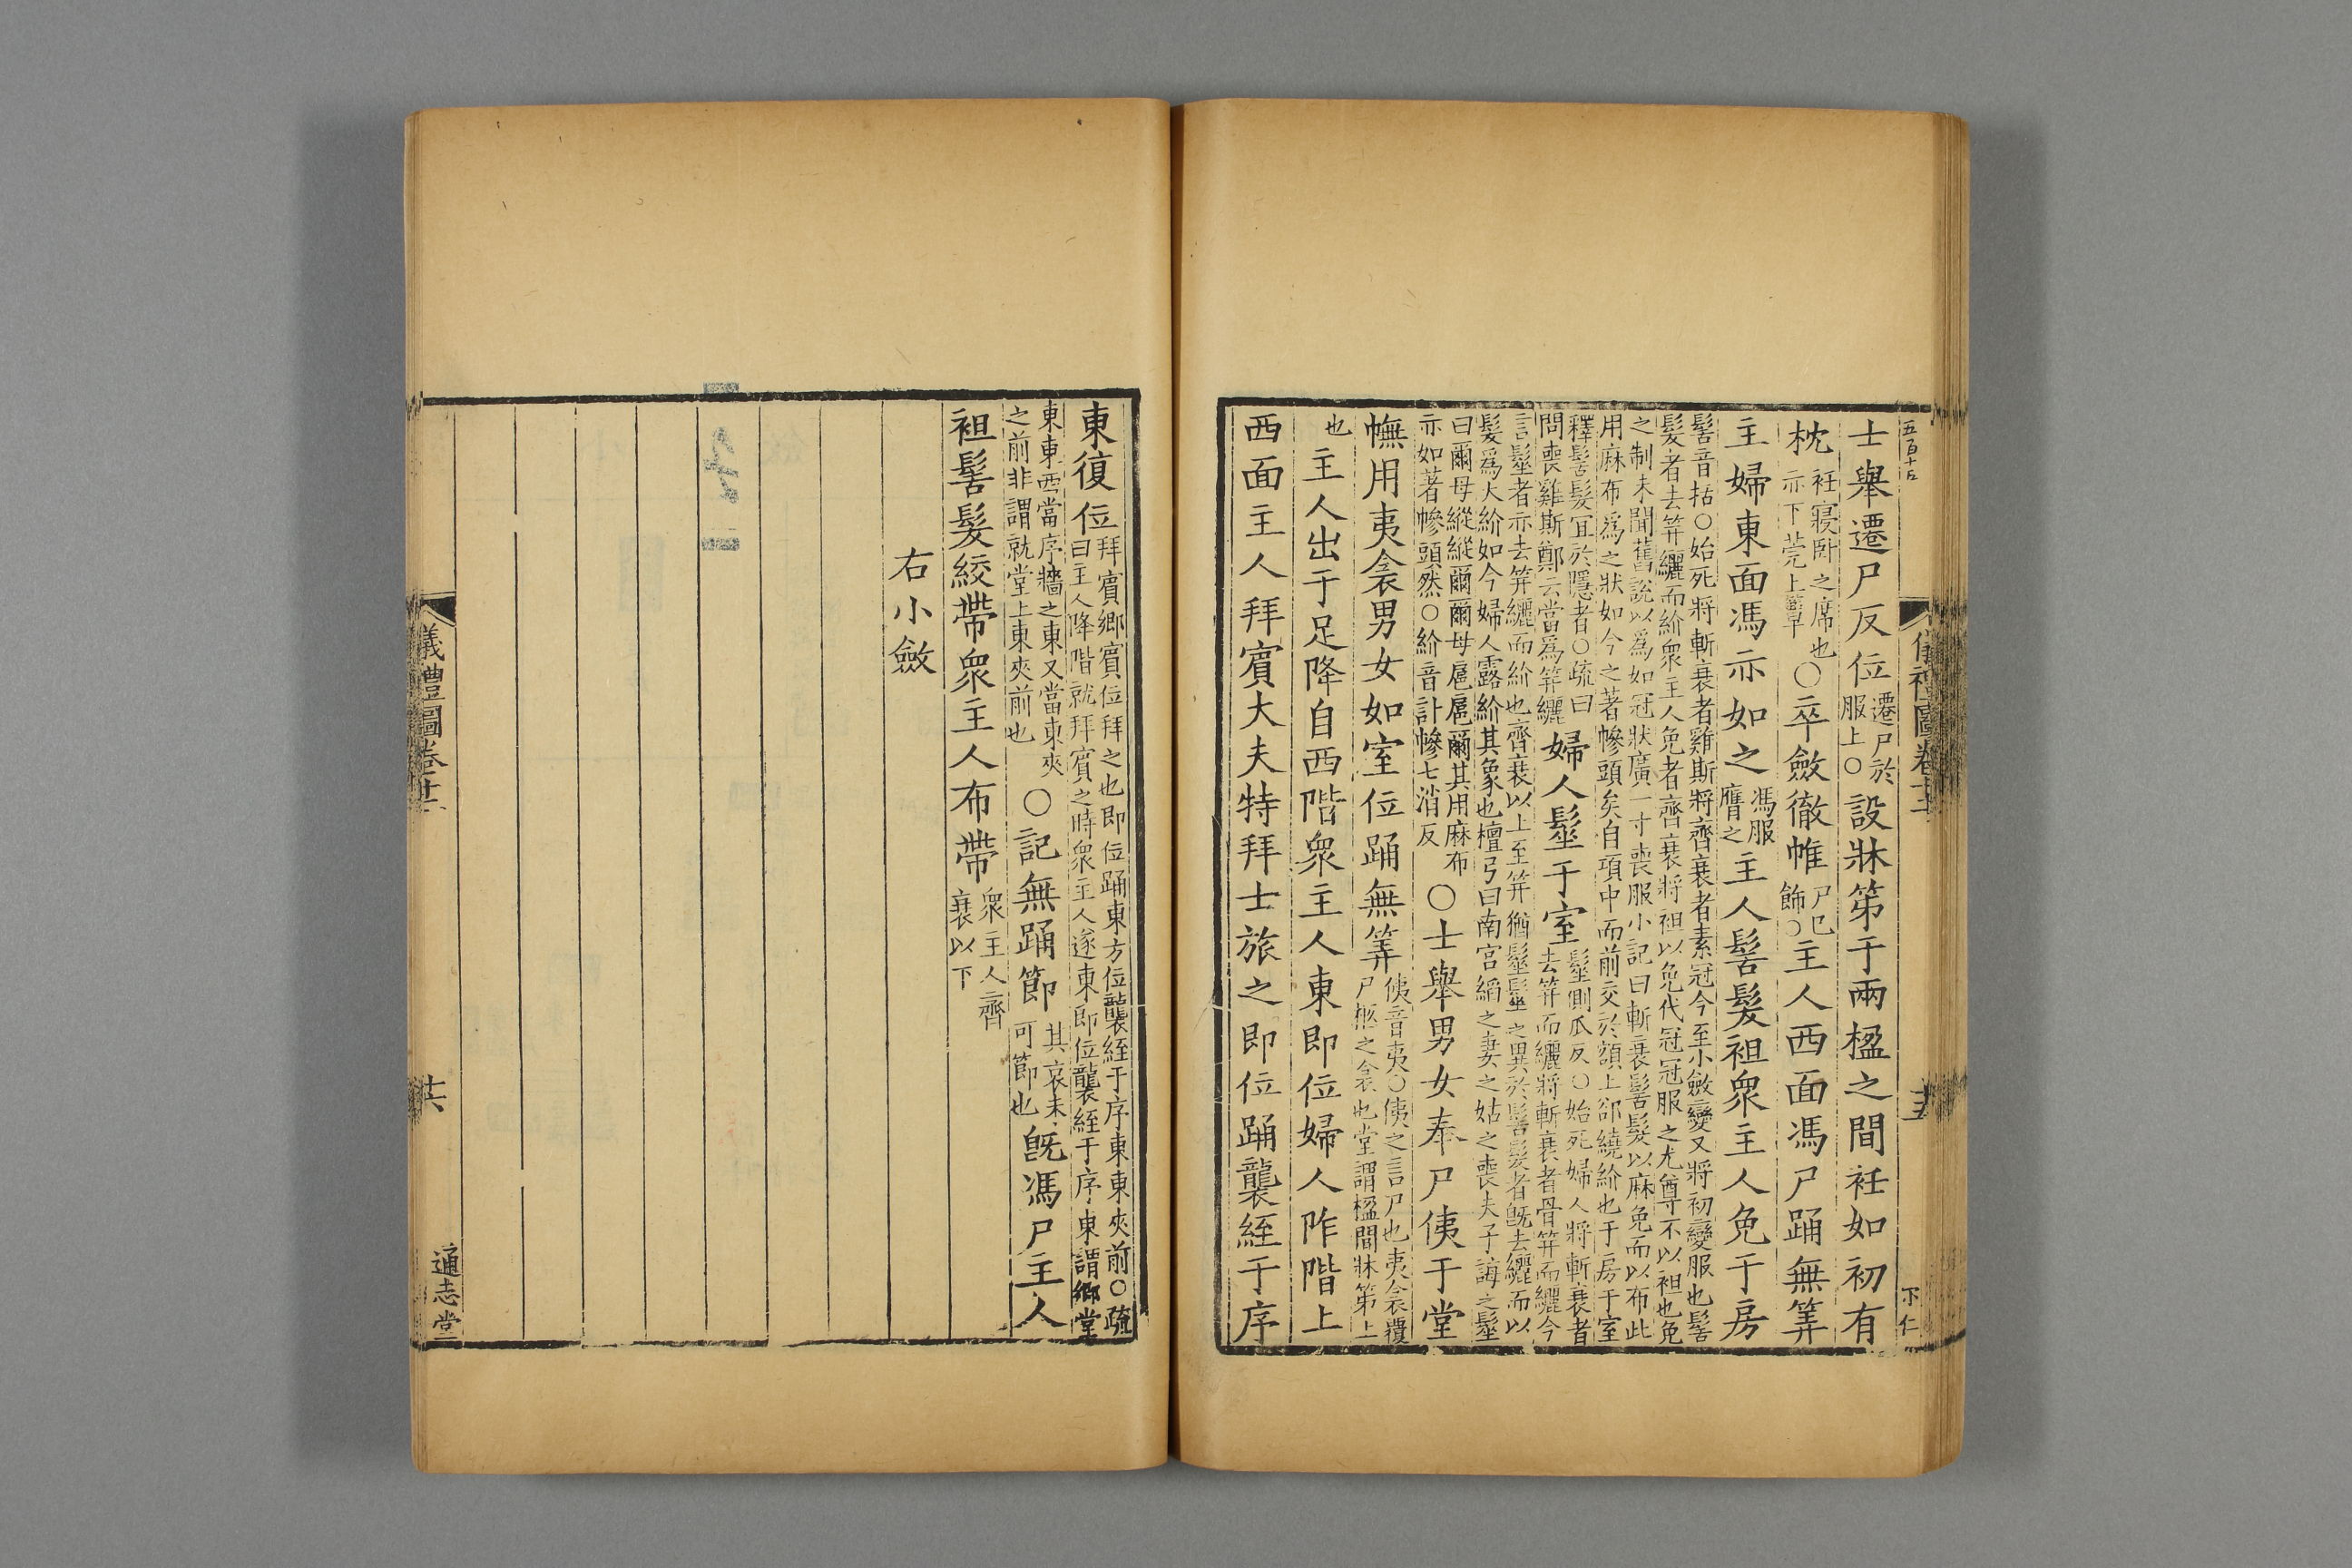 士舉遷尸反位遷尸於服上○設牀笫于兩楹之間衽如初有
枕衽寢卧之席也亦下莞上簟○卒斂徹帷尸已飾○主人西面馮尸踊無筭
主婦東面馮亦如之馮服膺之主人髺髮袒眾主人免于房
髺音括○始死將斬衰者雞斯將齊衰者素冠今至小斂變又將初變服也髺
髮者去笄纚而紒眾主人免者齊衰將袒以免代冠冠服之尤尊不以袒也免
之制未聞舊說以為如冠狀廣一寸喪服小記曰斬衰髺髮以麻免而以布此
用麻布為之狀如今之著幓頭矣自項中而前交於額上郤繞紒也于房于室
釋髺髮冝於隱者○疏曰
問喪雞斯鄭云當為笄纚
婦人髽于室髽側瓜反○始死婦人將斬衰者
去笄而纚將斬衰者骨笄而纚今
言髽者亦去笄纚而紒也齊衰以上至笄猶髽髽之異於髺髮者旣去纚而以
髮為大紒如今婦人露紒其象也檀弓曰南宮縚之妻之姑之喪夫子誨之髽
曰爾毋縱縱爾爾毋扈扈爾其用麻布
亦如著幓頭然○紒音計幓七消反
○士舉男女奉尸侇于堂
幠用夷衾男女如室位踊無筭侇音夷○侇之言尸也夷衾覆尸柩之衾也堂謂楹間牀笫上
也主人出于足降自西階眾主人東即位婦人阼階上
西面主人拜賓大夫特拜士旅之即位踊襲絰于序
五百十五
儀禮圖卷十二
十五
卞仁
東復位拜賓鄉賓位拜之也即位踊東方位襲絰于序東東夾前○疏
曰主人降階就拜賓之時眾主人遂東即位襲絰于序東謂鄉堂
東東西當序牆之東又當東夾
之前非謂就堂上東夾前也
○記無踊節其哀未可節也旣馮尸主人
袒髺髮絞帶眾主人布帶眾主人齊衰以下
右小斂
儀禮圖卷十二
十六
通志堂